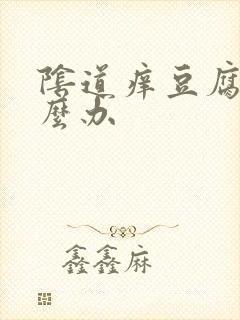 陰道痒豆腐
麼办
鑫鑫麻